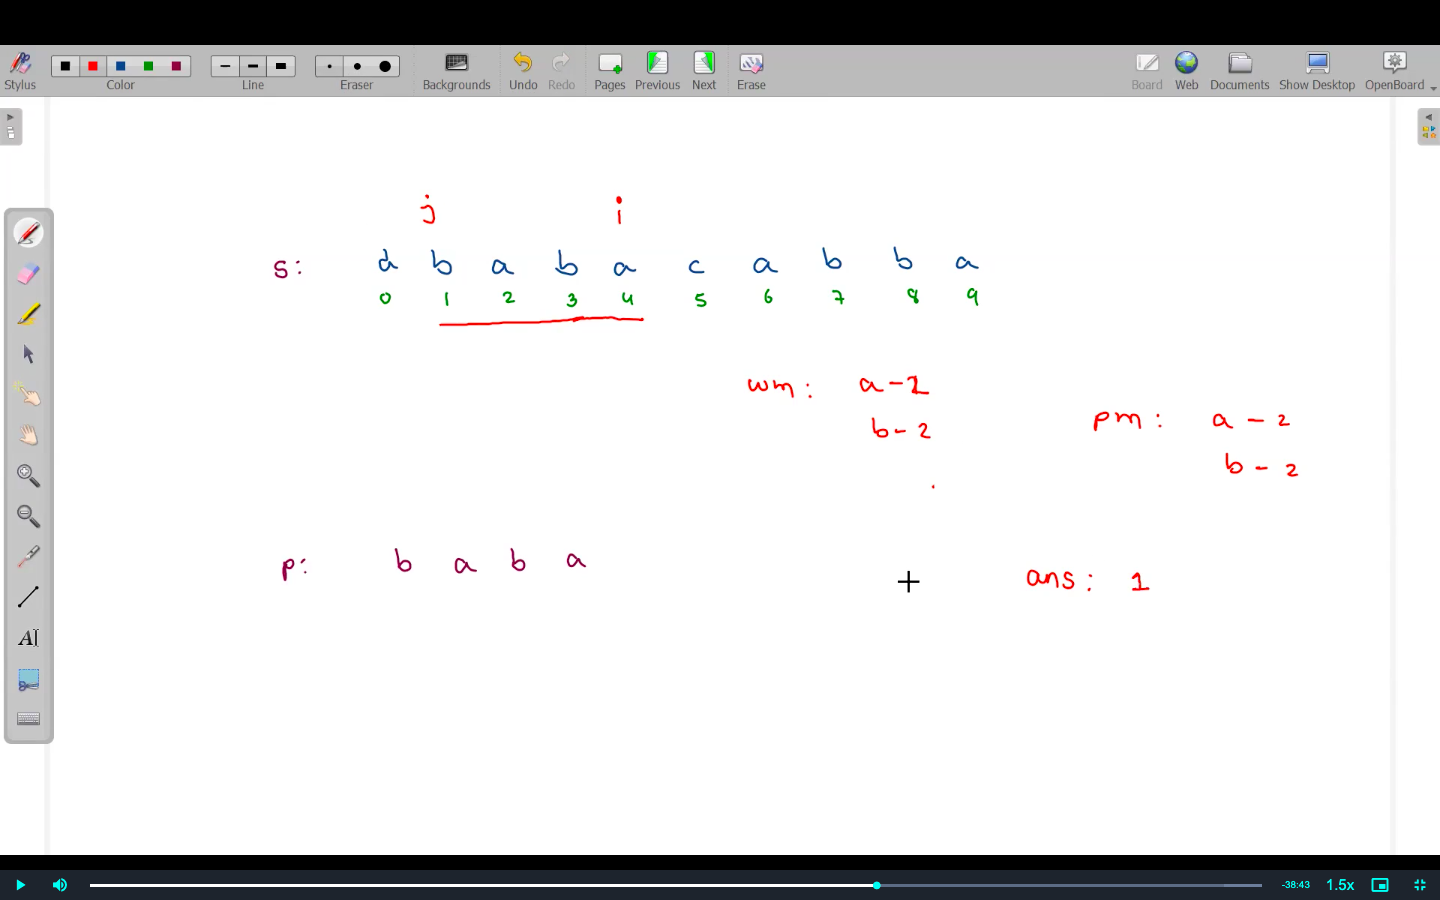 Stylus Color Line Eraser Backgrounds Undo Redo Pages Previous Next Erase Board Web Documents Show Desktop OpenBoard
j i
s: d b a b a c a b b a
0 1 2 3 4 5 6 7 8 9
wm: a - 2
b - 2
pm: a - 2
b - 2
p: b a b a
ans: 1
AI
-38:43 1.5x